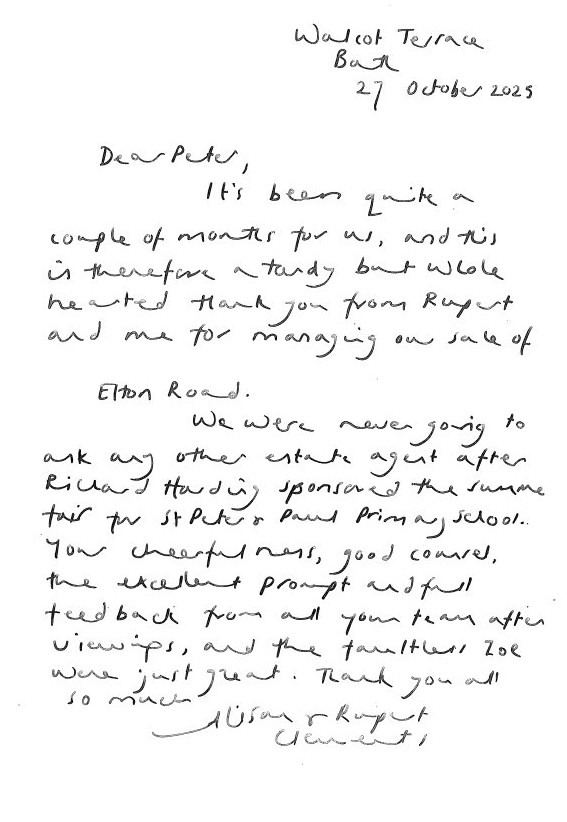 Walcot Terrace
Bath
27 October 2025
Dear Peter,
It's been quite a
couple of months for us, and this
is therefore a tardy but whole
hearted thank you from Rupert
and me for managing our sale of
Elton Road.
We were never going to
ask any other estate agent after
Richard Harding sponsored the summe
fair for St Peter & Paul Primary School.
Your cheerfulness, good counsel,
the excellent prompt and full
feedback from all your team after
viewings, and the faultless Zoe
were just great. Thank you all
so much
Alison & Rupert
Clements